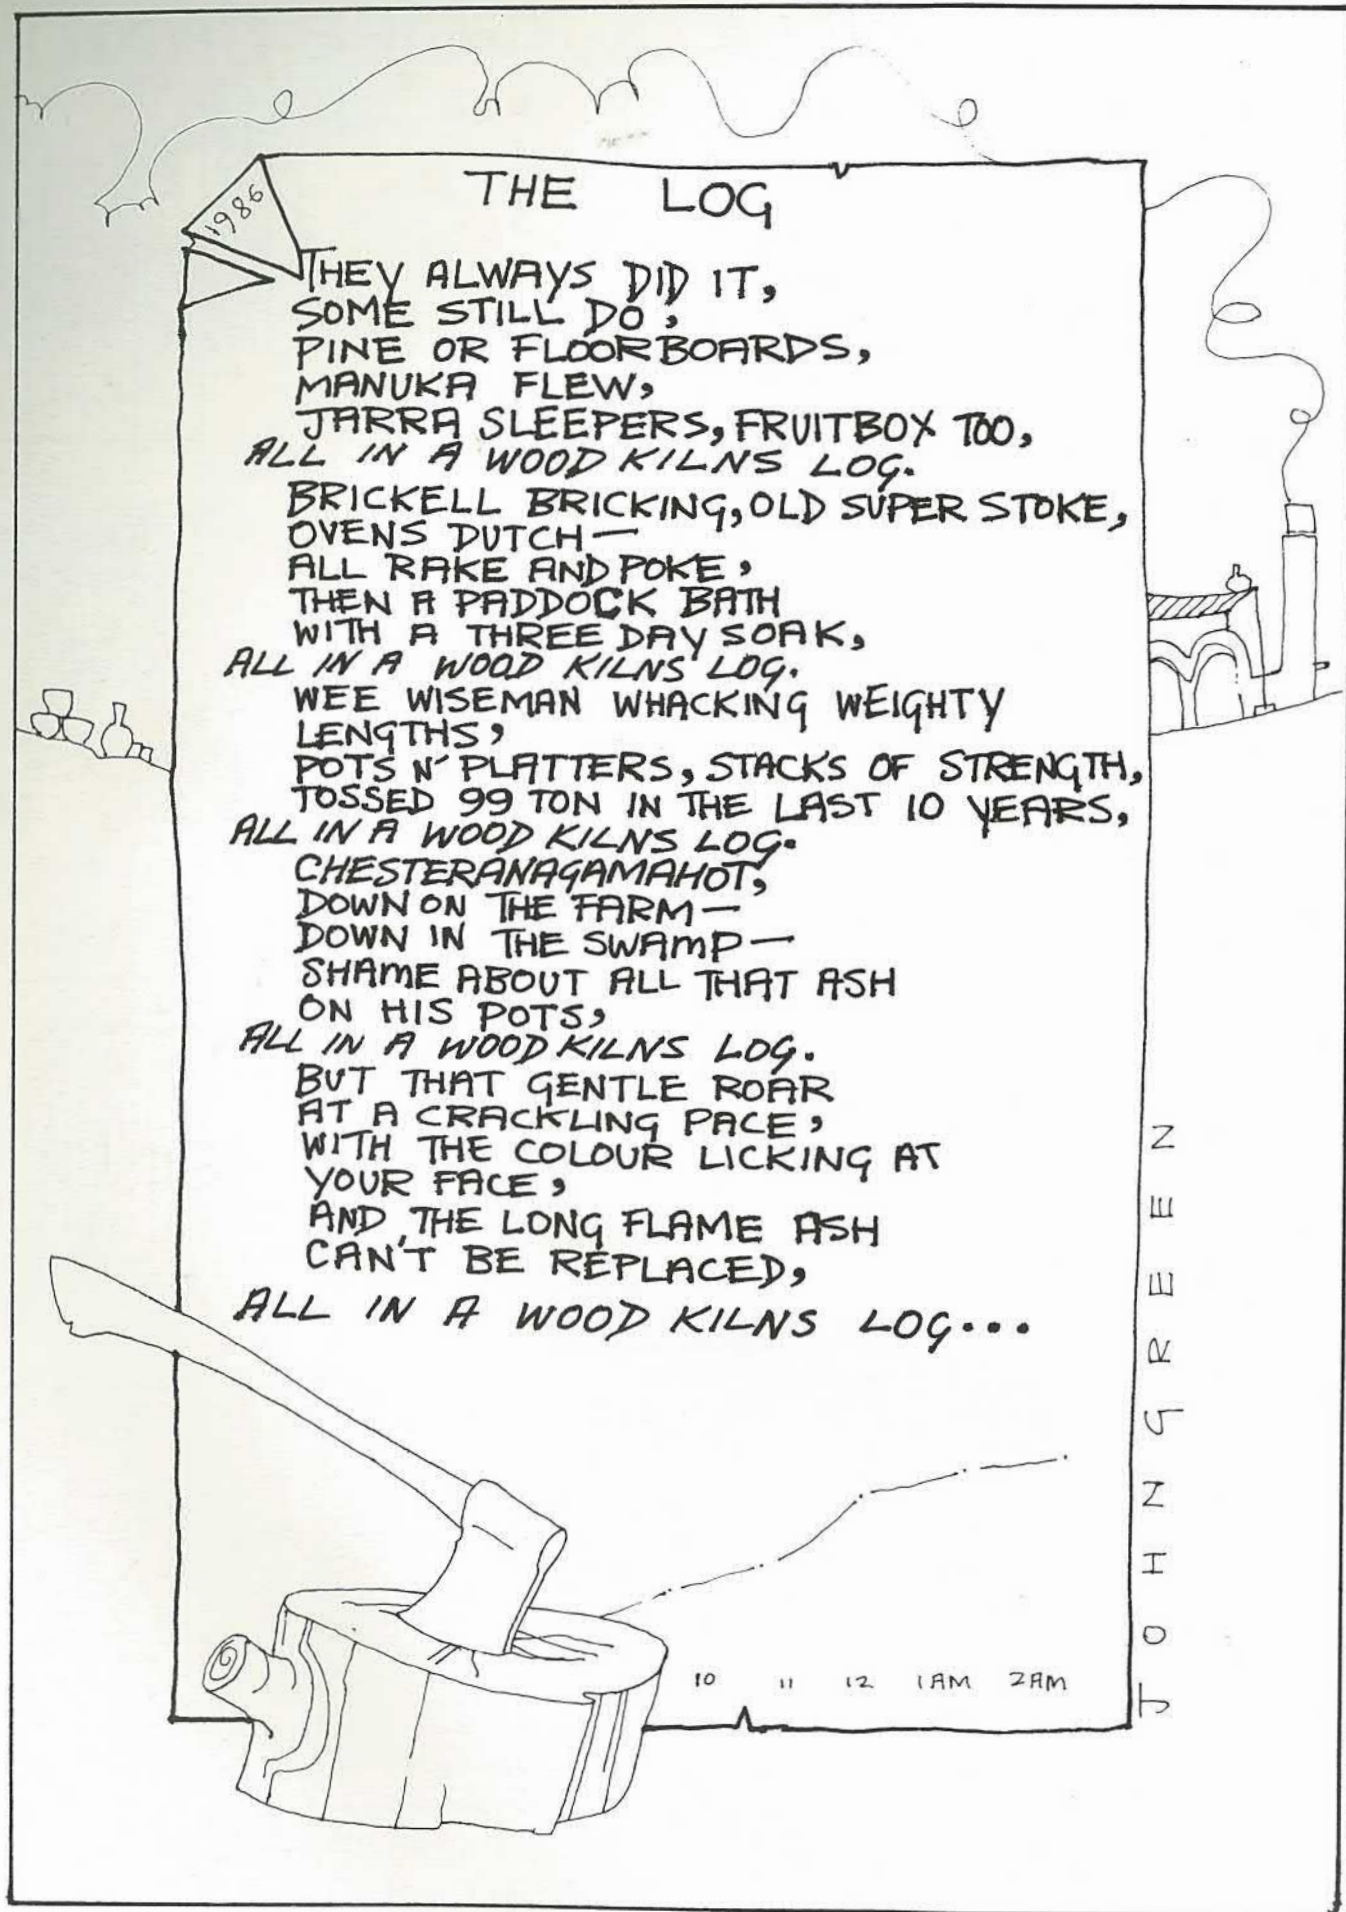 THE LOG
1986
THEY ALWAYS DID IT,
SOME STILL DO,
PINE OR FLOORBOARDS,
MANUKA FLEW,
JARRA SLEEPERS, FRUITBOX TOO,
ALL IN A WOOD KILNS LOG.
BRICKELL BRICKING, OLD SUPER STOKE,
OVENS DUTCH—
ALL RAKE AND POKE,
THEN A PADDOCK BATH
WITH A THREE DAY SOAK,
ALL IN A WOOD KILNS LOG.
WEE WISEMAN WHACKING WEIGHTY
LENGTHS,
POTS N' PLATTERS, STACKS OF STRENGTH,
TOSSED 99 TON IN THE LAST 10 YEARS,
ALL IN A WOOD KILNS LOG.
CHESTERANAGAMAHOT,
DOWN ON THE FARM—
DOWN IN THE SWAMP—
SHAME ABOUT ALL THAT ASH
ON HIS POTS,
ALL IN A WOOD KILNS LOG.
BUT THAT GENTLE ROAR
AT A CRACKLING PACE,
WITH THE COLOUR LICKING AT
YOUR FACE,
AND THE LONG FLAME ASH
CAN'T BE REPLACED,
ALL IN A WOOD KILNS LOG...
10 11 12 1AM 2AM
JOHN GREEN